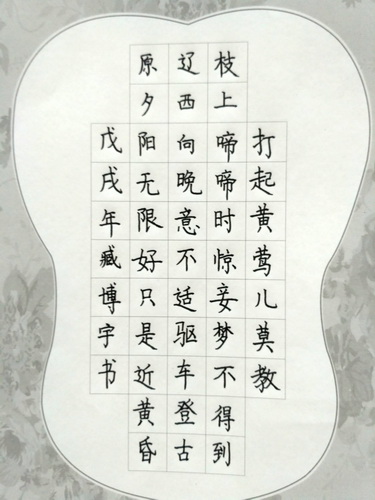 打起黄莺儿莫教
枝上啼啼时惊妾梦不得到
辽西向晚意不适驱车登古
原夕阳无限好只是近黄昏
戊戌年臧博宇书